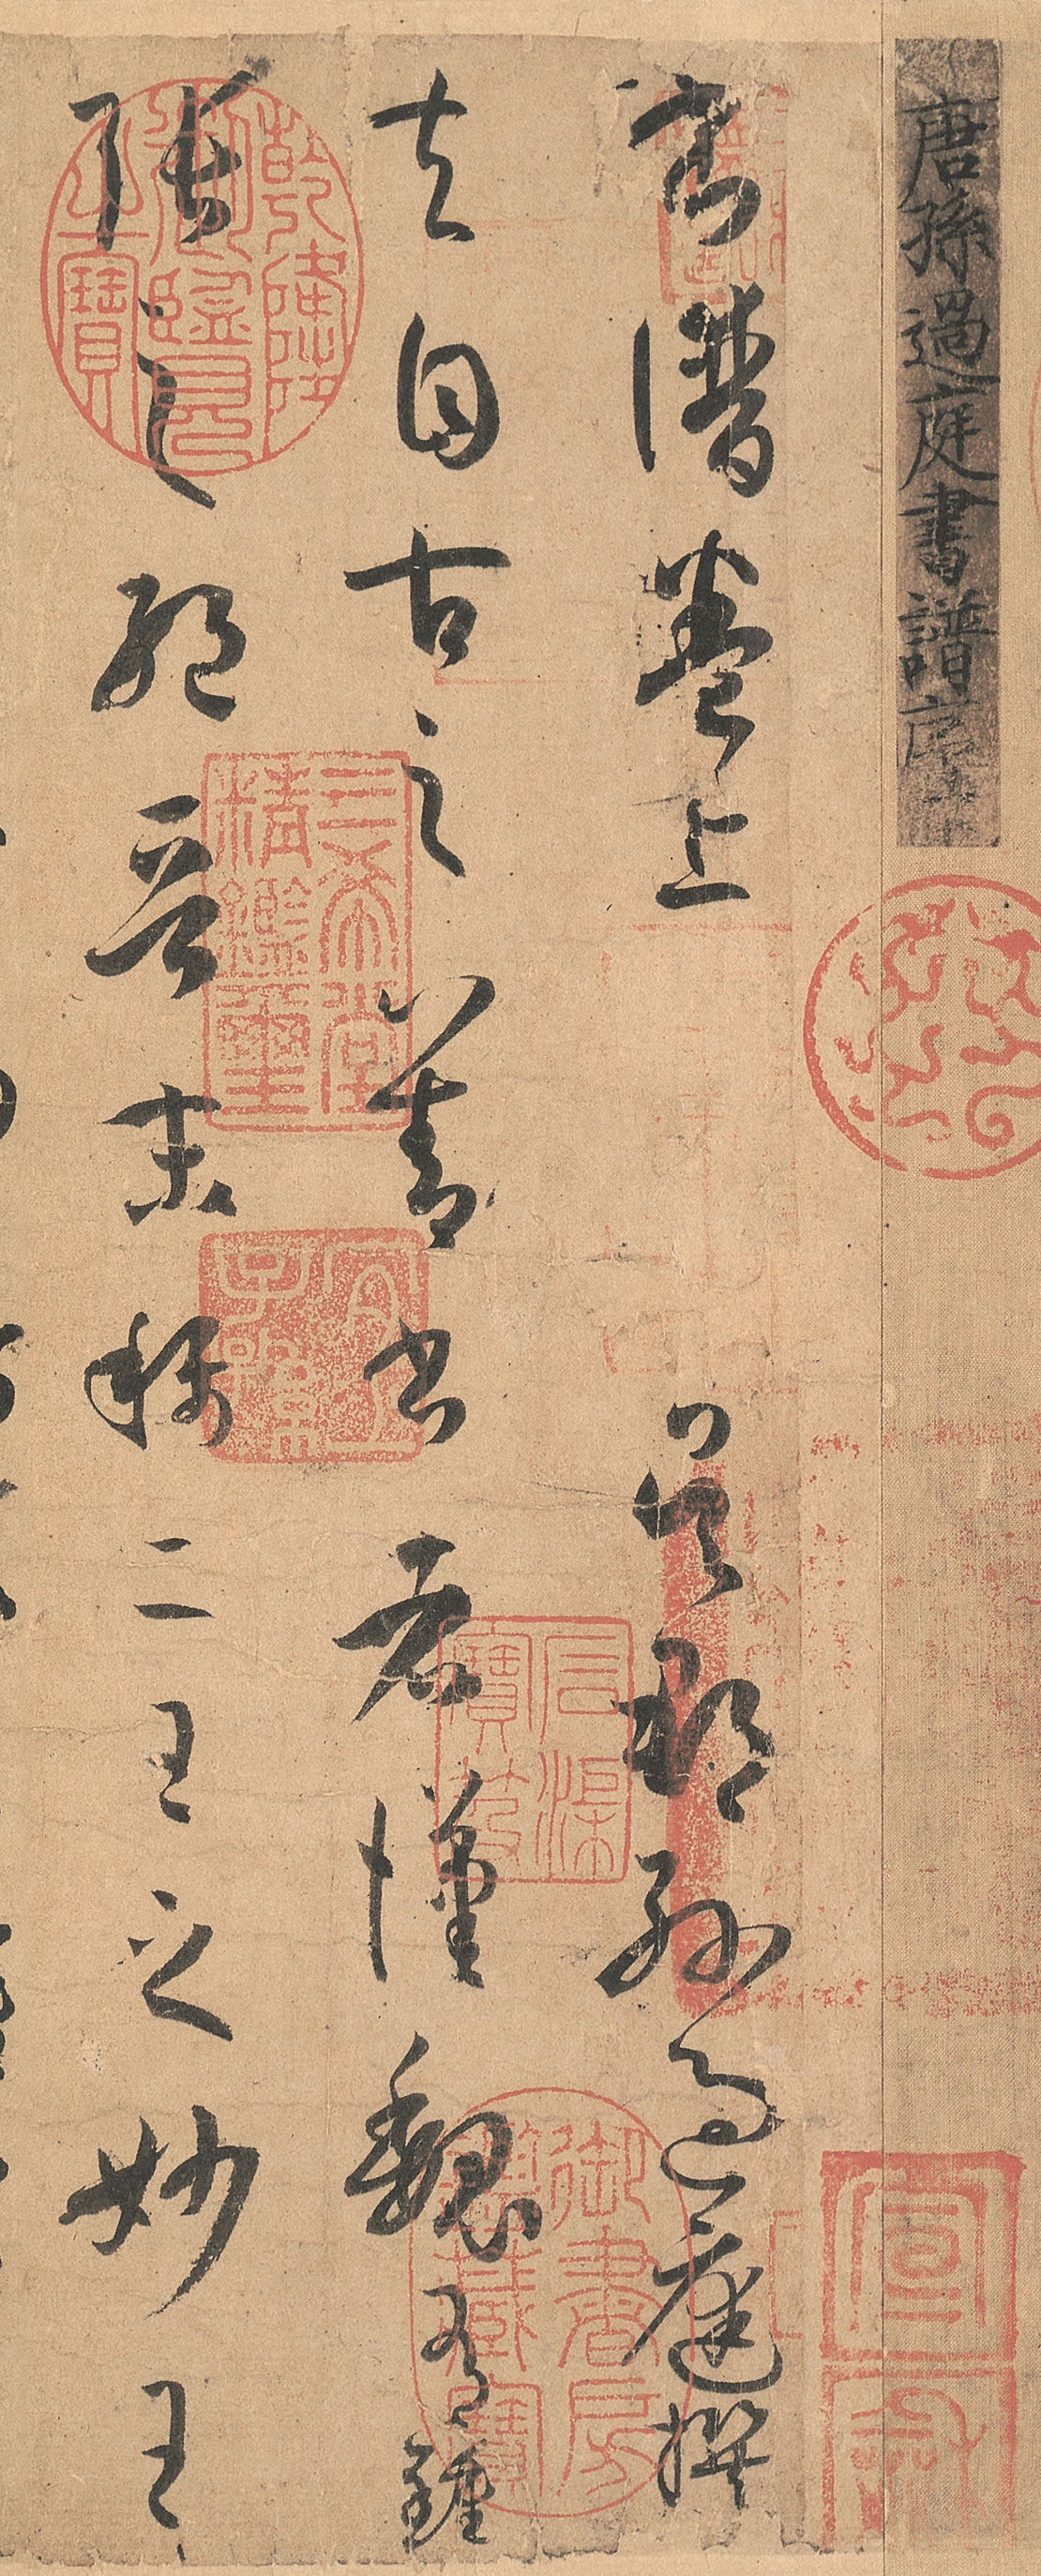 唐孫過庭書譜序上
書譜卷上 吳郡孫過庭撰
夫自古之善書者漢魏有鍾
張之絕晉末稱二王之妙王
乾隆御覽之寶
三希堂精鑑璽
宜子孫
石渠寶笈
御書房鑑藏寶
宣和